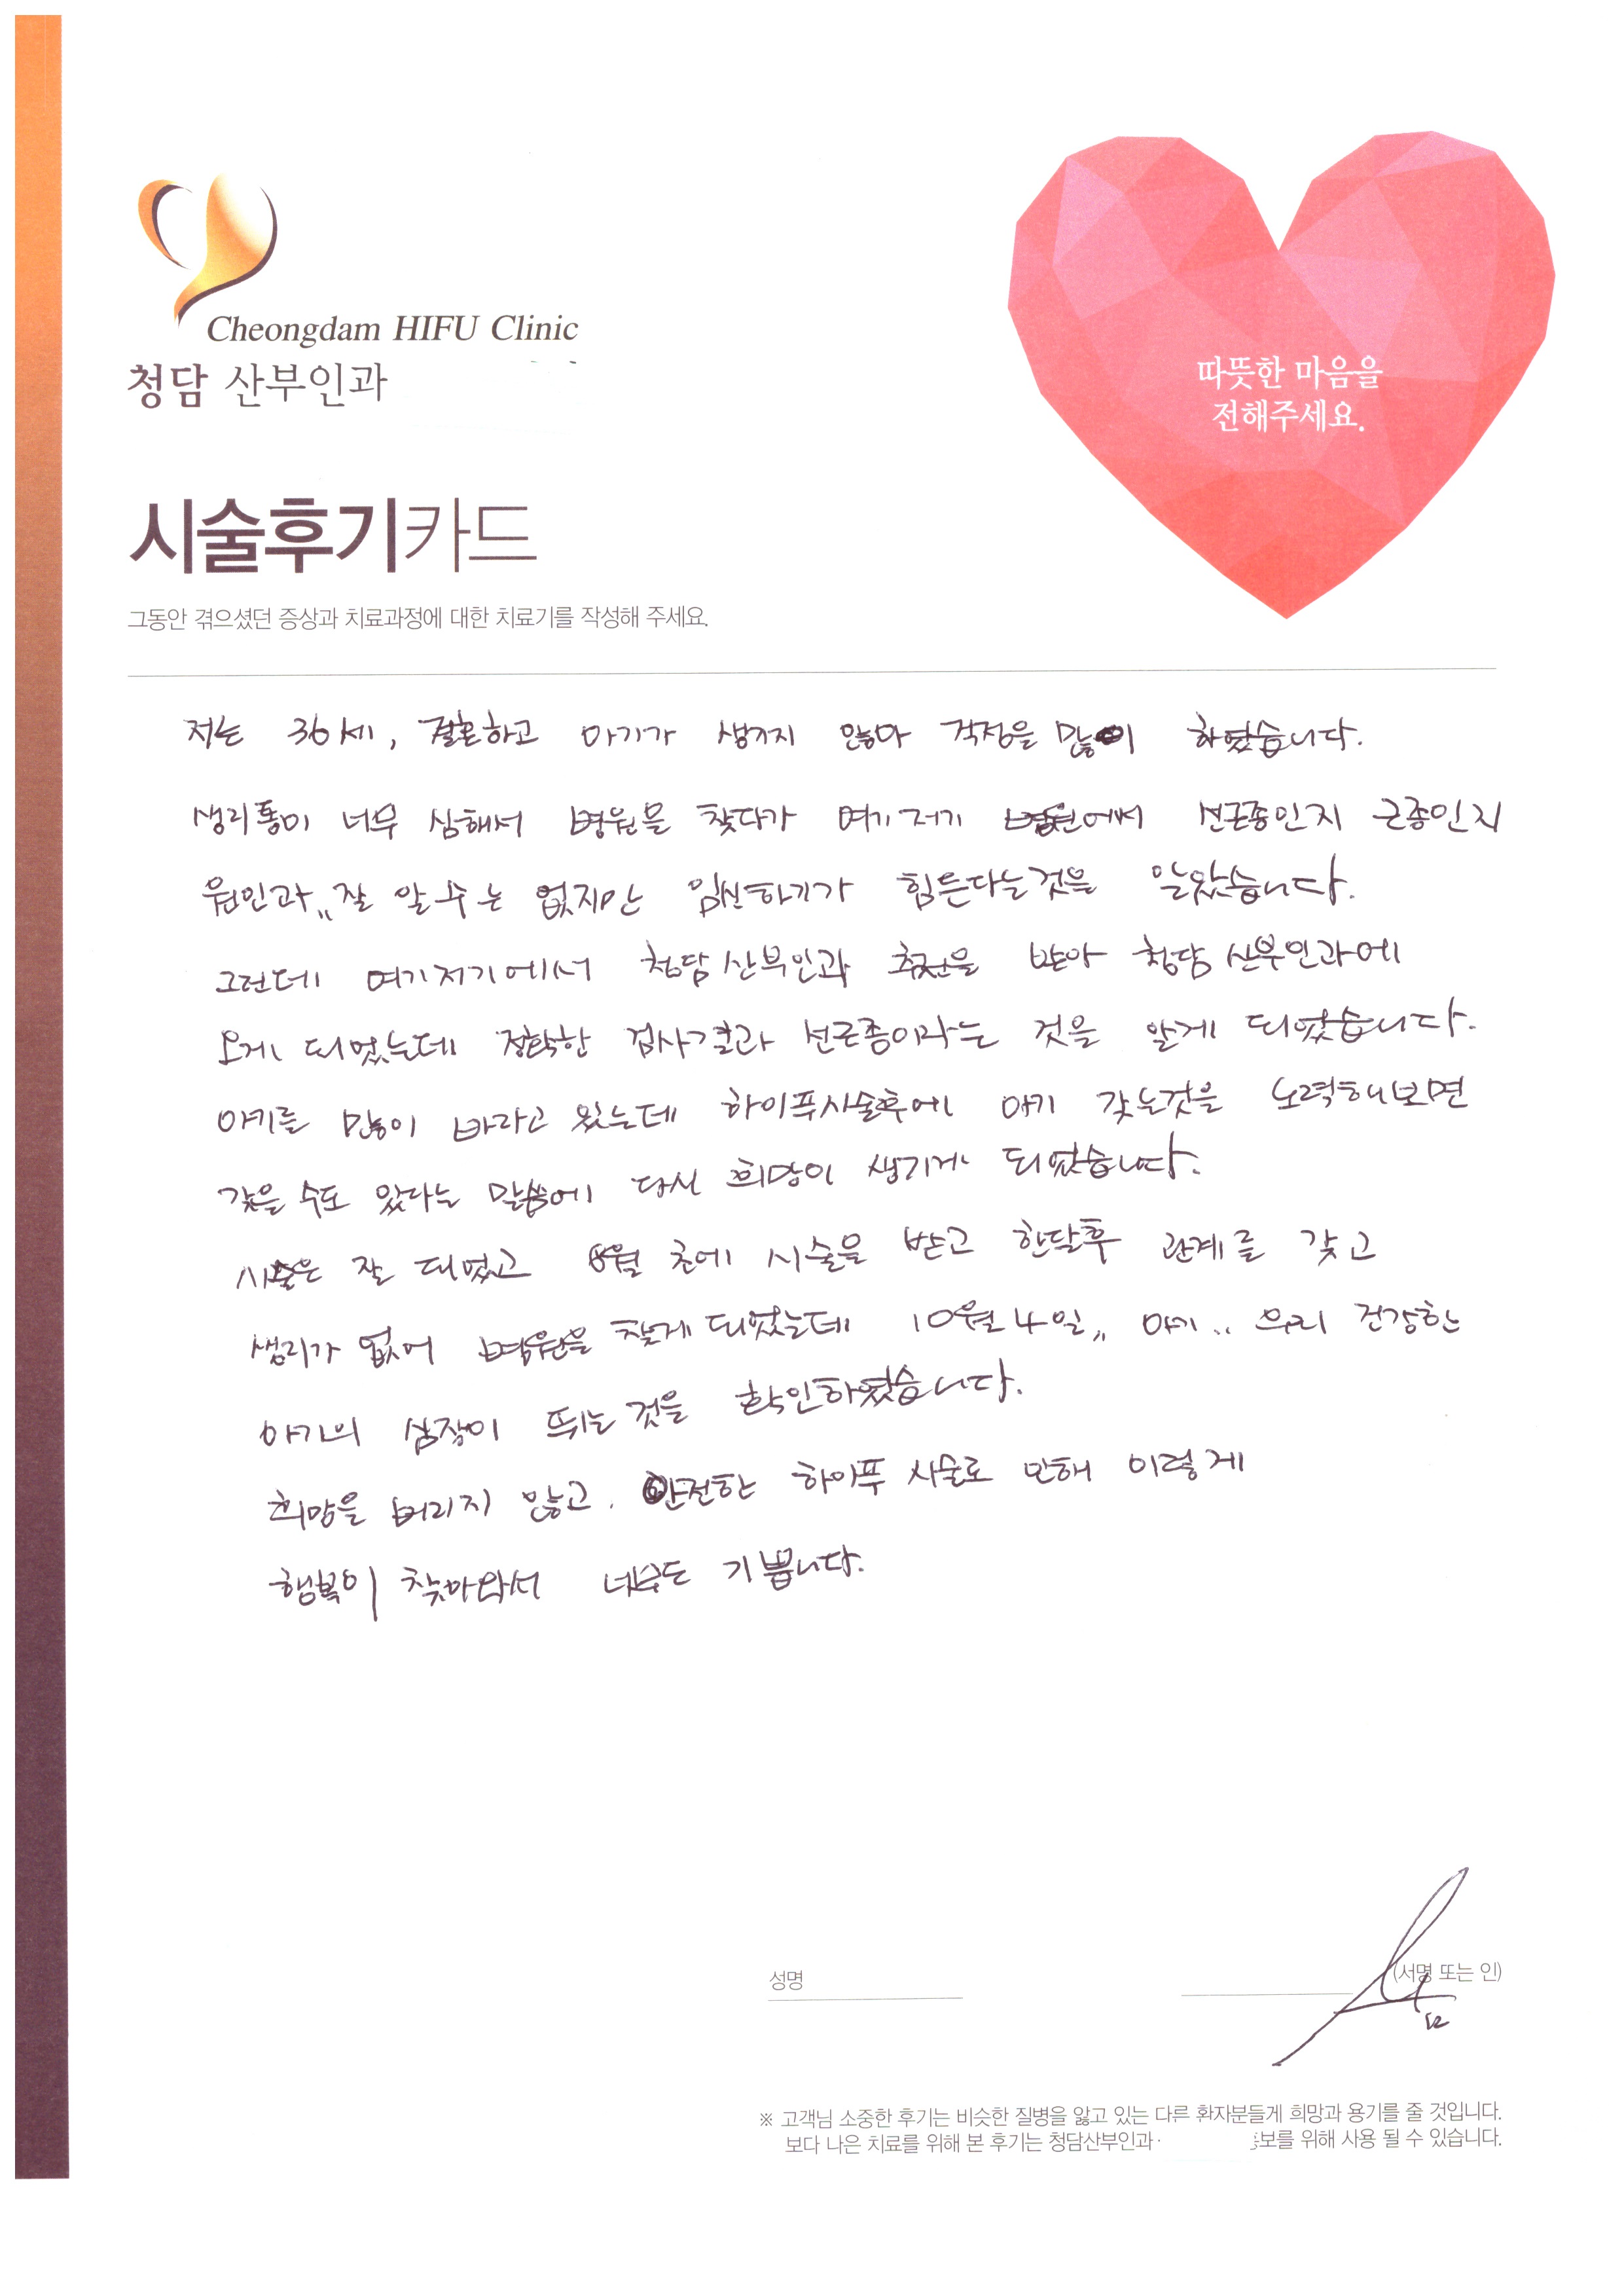 Cheongdam HIFU Clinic
청담 산부인과
따뜻한 마음을
전해주세요.
시술후기카드
그동안 겪으셨던 증상과 치료과정에 대한 치료기를 작성해 주세요.
저는 36세, 결혼하고 아기가 생기지 않아 걱정을 많이 하였습니다.
생리통이 너무 심해서 병원을 찾다가 여기저기 병원에서 선근종인지 근종인지
원인과,, 잘 알 수는 없지만 임신하기가 힘든다는것을 알았습니다.
그런데 여기저기에서 청담산부인과 추천을 받아 청담산부인과에
오게 되었는데 정확한 검사결과 선근종이라는 것을 알게 되었습니다.
아기를 많이 바라고 있는데 하이푸시술후에 아기 갖는것을 노력해보면
갖을 수도 있다는 말씀에 다시 희망이 생기게 되었습니다.
시술은 잘 되었고 8월 초에 시술을 받고 한달후 관계를 갖고
생리가 없어 병원을 찾게 되었는데 10월 4일,, 아기.. 우리 건강한
아기의 심장이 뛰는 것을 확인하였습니다.
희망을 버리지 않고. 안전한 하이푸 시술로 인해 이렇게
행복이 찾아와서 너무도 기쁩니다.
성명
(서명 또는 인)
※ 고객님 소중한 후기는 비슷한 질병을 앓고 있는 다른 환자분들게 희망과 용기를 줄 것입니다.
보다 나은 치료를 위해 본 후기는 청담산부인과 보를 위해 사용 될 수 있습니다.